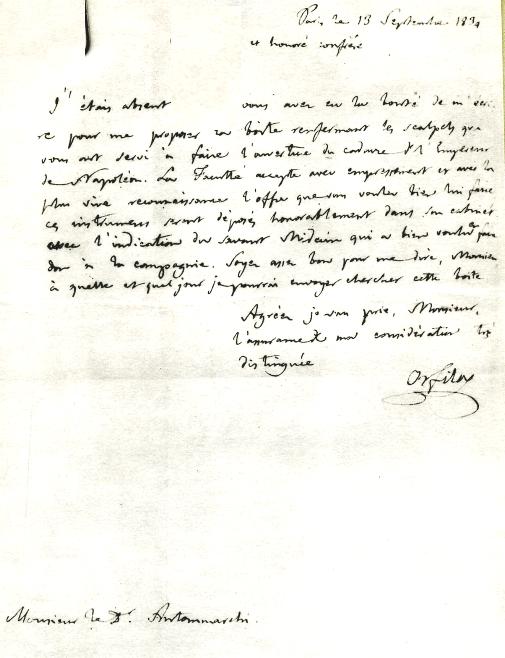 Paris le 13 Septembre 1834
et honoré confrère
J'étais absent vous avez eu la bonté de m'écri-
re pour me proposer la boîte renfermant les scalpels que
vous ont servi à faire l'ouverture du cadavre de l'Empereur
de Napoléon. La Faculté accepte avec empressement et avec la
plus vive reconnaissance l'offre que vous voulez bien lui faire
ces instrumens seront déposés honorablement dans son cabinet
avec l'indication du savant Médecin qui a bien voulu en faire
don à la compagnie. Soyez assez bon pour me dire, Monsieur
à quelle et quel jour je pourrai envoyer chercher cette boîte
Agréez je vous prie, Monsieur,
l'assurance de ma considération très
distinguée
Orfila
Monsieur le Dr. Antommarchi.